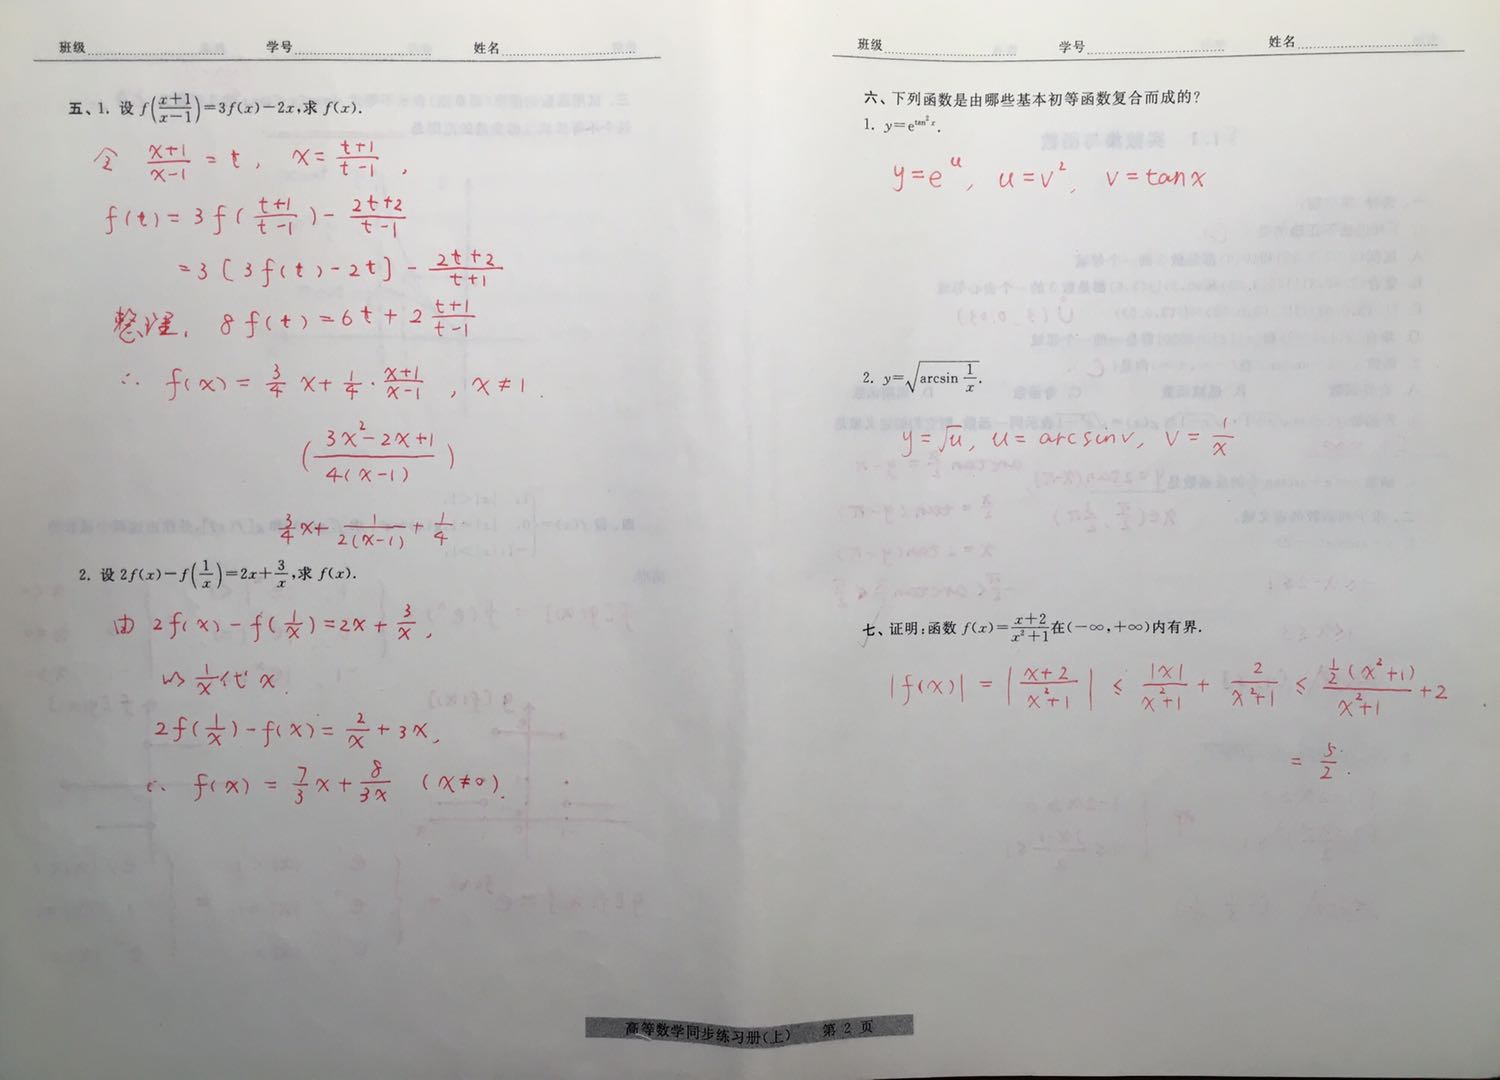 班级 学号 姓名
五、1. 设 f((x+1)/(x-1))=3f(x)-2x,求 f(x).
令 (x+1)/(x-1) = t, x = (t+1)/(t-1),
f(t) = 3f((t+1)/(t-1)) - (2t+2)/(t-1)
=3[3f(t)-2t] - (2t+2)/(t+1)
整理, 8f(t)=6t+2 (t+1)/(t-1)
∴ f(x) = 3/4 x + 1/4 · (x+1)/(x-1), x≠1.
((3x²-2x+1)/(4(x-1)))
3/4 x + 1/(2(x-1)) + 1/4
2. 设 2f(x)-f(1/x)=2x+3/x,求 f(x).
由 2f(x)-f(1/x)=2x+3/x,
以 1/x 代 x.
2f(1/x)-f(x)=2/x+3x,
∴ f(x) = 7/3 x + 8/(3x) (x≠0).
班级 学号 姓名
六、下列函数是由哪些基本初等函数复合而成的?
1. y=e^(tan² x).
y=e^u, u=v², v=tanx
2. y=√(arcsin 1/x).
y=√u, u=arcsinv, v=1/x
七、证明:函数 f(x)=(x+2)/(x²+1)在(-∞,+∞)内有界.
|f(x)| = |(x+2)/(x²+1)| ≤ |x|/(x²+1) + 2/(x²+1) ≤ (1/2(x²+1))/(x²+1) + 2
= 5/2.
高等数学同步练习册(上) 第 2 页